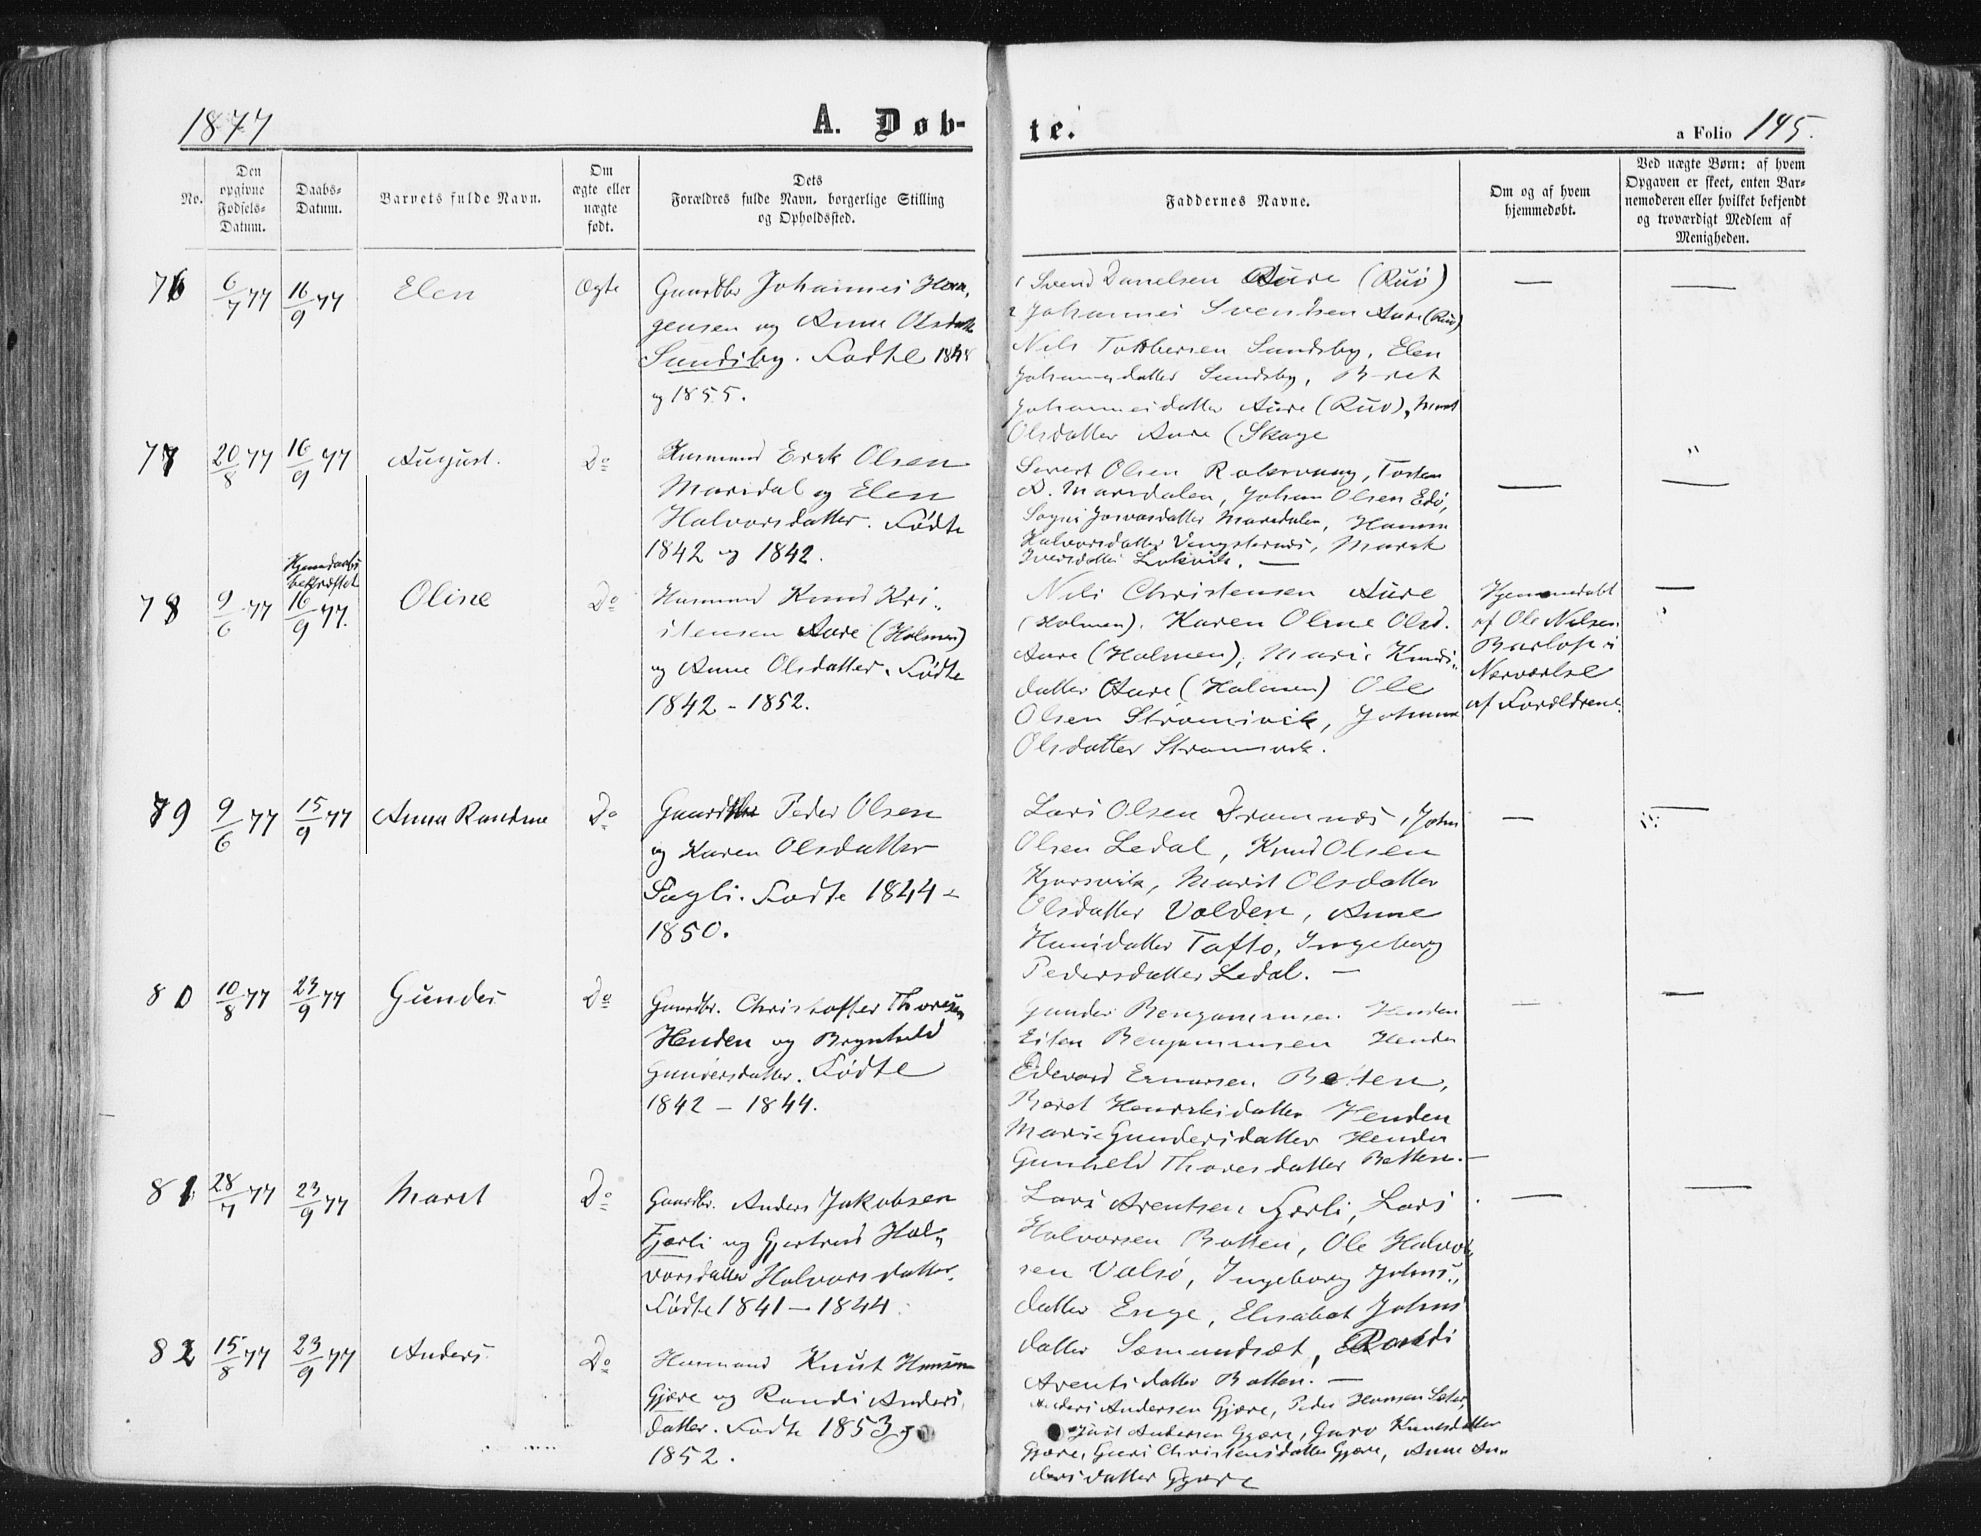 1877
A. Døb-
te.
a Folio 145.
No.
Den opgivne Fødsels-Datum.
Daabs-Datum.
Barnets fulde Navn.
Om ægte eller uægte født.
Dets Forældres fulde Navn, borgerlige Stilling og Opholdssted.
Faddernes Navne.
Om og af hvem hjemmedøbt.
Ved uægte Børn: af hvem Opgaven er skeet, enten Barnemoderen eller hvilket bekjendt og troværdigt Medlem af Menigheden.
76 6/7 77 16/9 77 Elen Ægte
Gaardbr Johannes
og Anne Olsdatter
Sundsby. Fødte 1848
og 1855.
Svend Danielsen Aure (Ruö)
Johannes Svendsen Aure (Ruö)
Nils Sundsby, Elen
Johannesdatter Sundsby, Beret
Johannesdatter Aure (Ruö), Marit
Olsdatter Aure (Skage
77 20/8 77 16/9 77 August. Do
Husmand Erik Olsen
Marsdal og Elen
Halvorsdatter. Fødte
1842 og 1842.
Sivert Olsen
Johan Olsen Edö,
Halvorsdatter
Iversdatter
78 9/6 77 Hjemdaabs bekræftet 16/9 77. Oline Do
Husmand Knud Kri-
stensen Aure (Holmen)
og Anne Olsdatter. Fødte
1842 - 1852.
Nils Christensen Aure
(Holmen). Karen Oline Olsd.
Aure (Holmen), Marie Knuds-
datter Aure (Holmen) Ole
Olsen Strømsvik, Johanna
Olsdatter Strømsvik.
Hjemmedøbt
af Ole Nilsen
i
Nærværelse
af Forældrene.
79 9/6 77 15/9 77 Anna Randine Do
Gaardbr Peder Olsen
og Karen Olsdatter
Fagli. Fødte 1844 -
1850.
Lars Olsen Dromnes, John
Olsen Ledal, Knud Olsen
Kjørsvik, Marit Olsdatter
Olsdatter Volden, Anne
Hansdatter Tafto, Ingeborg
Pedersdatter Ledal. —
80 10/8 77 23/9 77 Gunder Do
Gaardbr. Christoffer Thoresen
Henden og Brynhild
Gundersdatter. Fødte
1842 - 1844.
Gunder Benjaminsen Henden
Benjaminsen Henden
Edevard Einarsen Betten,
Beret Henriksdatter Henden
Marie Gundersdatter Henden
Gunhild Thoresdatter Betten. —
81 28/7 77 23/9 77 Marit Do
Gaardbr. Anders Jakobsen
Fjærli og Gjertrud Hal-
vorsdatter Halvorsdatter.
Fødte 1841 - 1844.
Lars Arentsen Fjærli, Lars
Halvorsen Botten, Ole Halvor-
sen Valsö, Ingeborg Johns-
datter Enge, Elisabet Johns
datter Sæmundsæt, Randi
Arentsdatter Botten. —
82 15/8 77 23/9 77 Anders Do
Husmand Knut Hansen
Gjære og Randi Anders-
datter. Fødte 1853 og
1852.
Anders Andersen Gjære, Peder Hansen Sæter,
Andersen Gjære, Guro Knutsdatter
Gjære, Guri Christensdatter Gjære, Anne An-
dersdatter Gjære